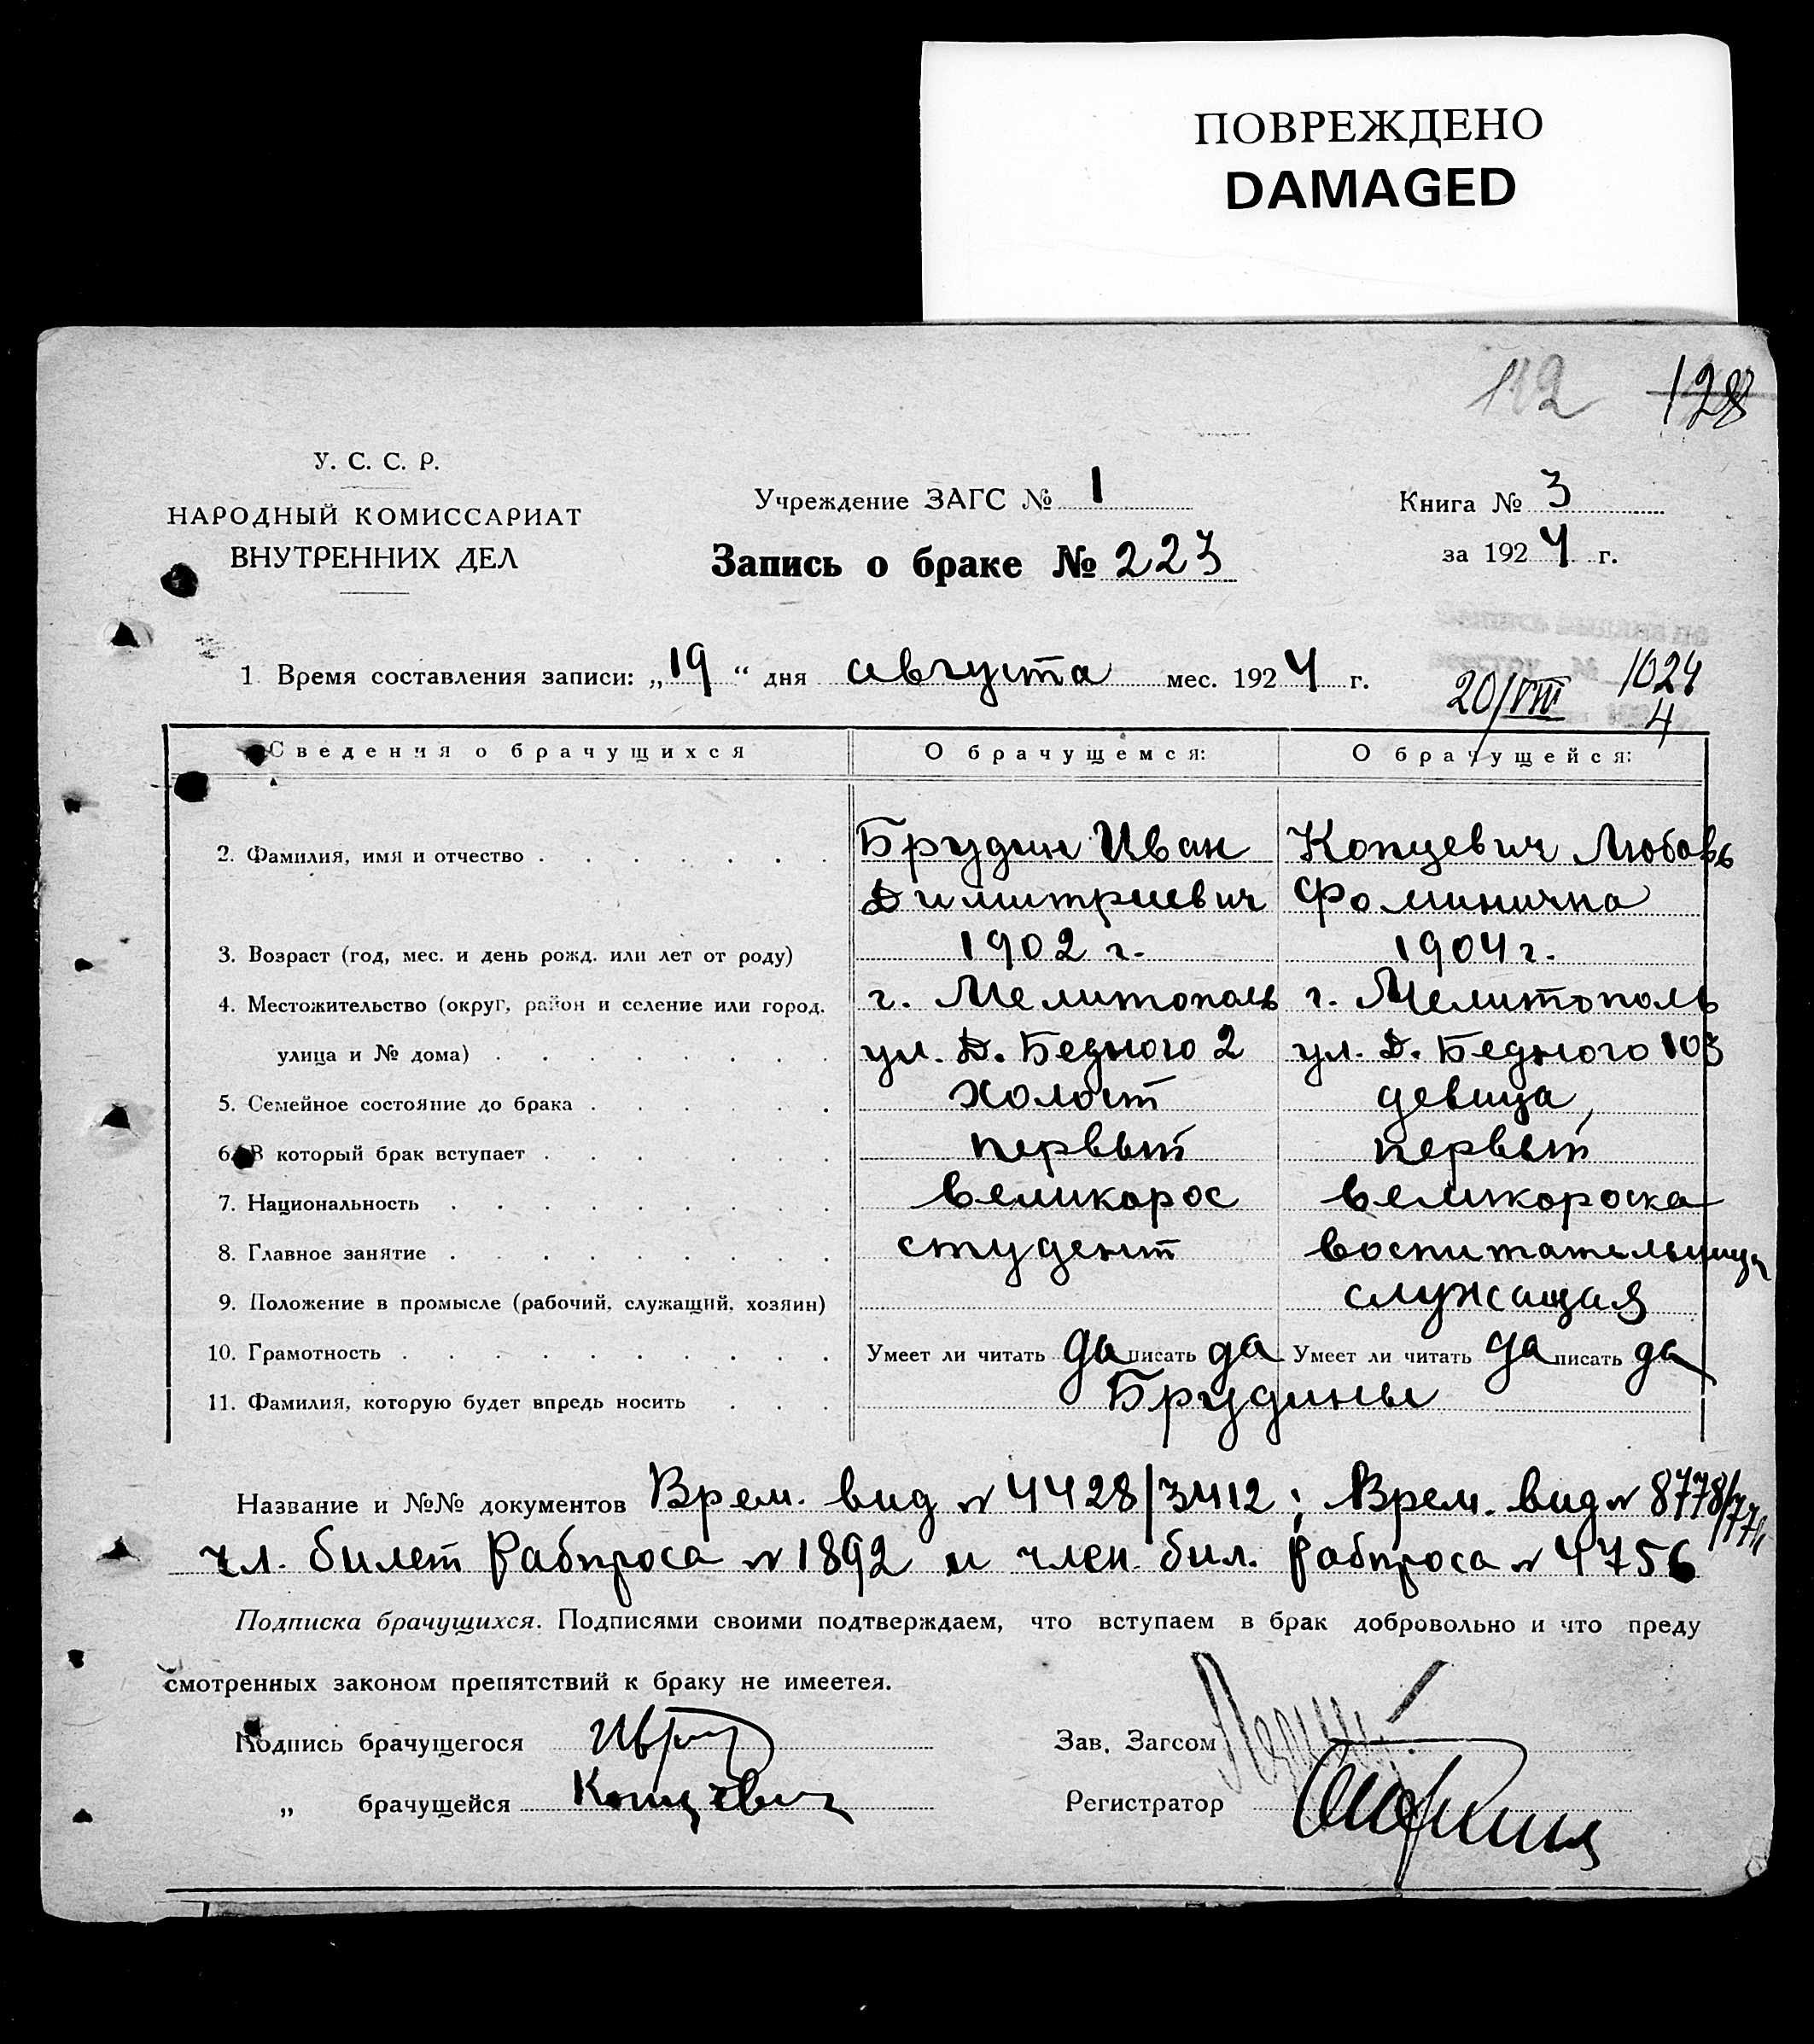 ПОВРЕЖДЕНО
DAMAGED
112 128
У. С. С. Р.
НАРОДНЫЙ КОМИССАРИАТ
ВНУТРЕННИХ ДЕЛ
Учреждение ЗАГС № 1
Запись о браке № 223
Книга № 3
за 1924 г.
1. Время составления записи: „19“ дня августа мес. 1924 г.
20/VIII 1924
4
Сведения о брачущихся О брачущемся: О брачущейся:
2. Фамилия, имя и отчество Брудин Иван Копцевич Любовь
Димитриевич Фоминична
3. Возраст (год, мес. и день рожд. или лет от роду) 1902 г. 1904 г.
4. Местожительство (округ, район и селение или город, г. Мелитополь г. Мелитополь
улица и № дома) ул. Д. Бедного 2 ул. Д. Бедного 103
5. Семейное состояние до брака холост девица,
6. В который брак вступает первый первый
7. Национальность великорос великороска
8. Главное занятие студент воспитательница
9. Положение в промысле (рабочий, служащий, хозяин) служащая
10. Грамотность Умеет ли читать да писать да Умеет ли читать да писать да
11. Фамилия, которую будет впредь носить Брудины
Название и №№ документов Врем. вид № 4428/3412; Врем. вид № 8778/774
чл. билет Рабпроса № 1892 и член. бил. Рабпроса № 4756
Подписка брачущихся. Подписями своими подтверждаем, что вступаем в брак добровольно и что преду
смотренных законом препятствий к браку не имеетея.
Подпись брачущегося
„ брачущейся Копцевич
Зав. Загсом
Регистратор